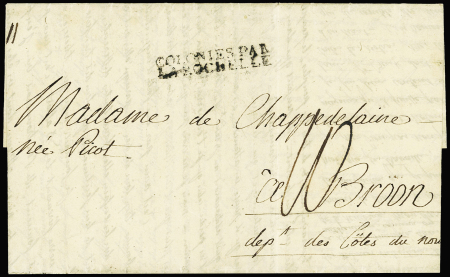 COLONIES PAR
LA ROCHELLE
Madame de Chappedelaine
née Picot
à Broon
dep.t des Côtes du nord